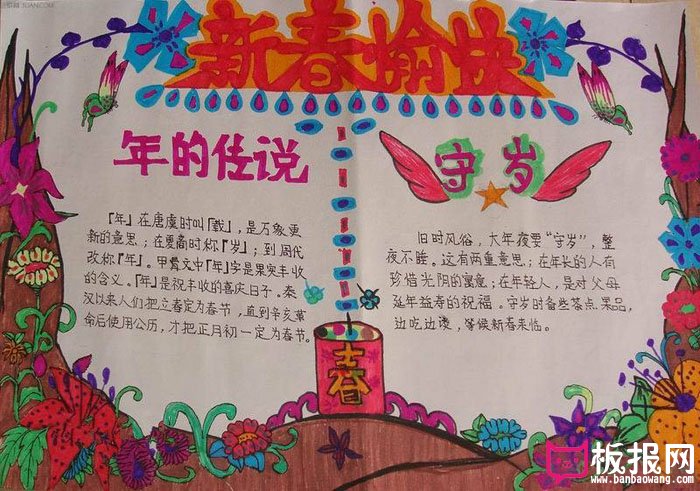 新春愉快
年的传说
「年」在唐虞时叫「载」，是万象更
新的意思；在夏商时称「岁」；到周代
改称「年」。甲骨文中「年」字是果实丰收
的含义。「年」是祝丰收的喜庆日子。秦
汉以来人们把立春定为春节，直到辛亥革
命后使用公历，才把正月初一定为春节。
守岁
旧时风俗，大年夜要“守岁”，整
夜不睡。这有两重意思；在年长的人有
珍惜光阴的寓意；在年轻人，是对父母
延年益寿的祝福。守岁时备些茶点果品，
边吃边谈，等候新春来临。
春
板报网
www.banbaowang.com